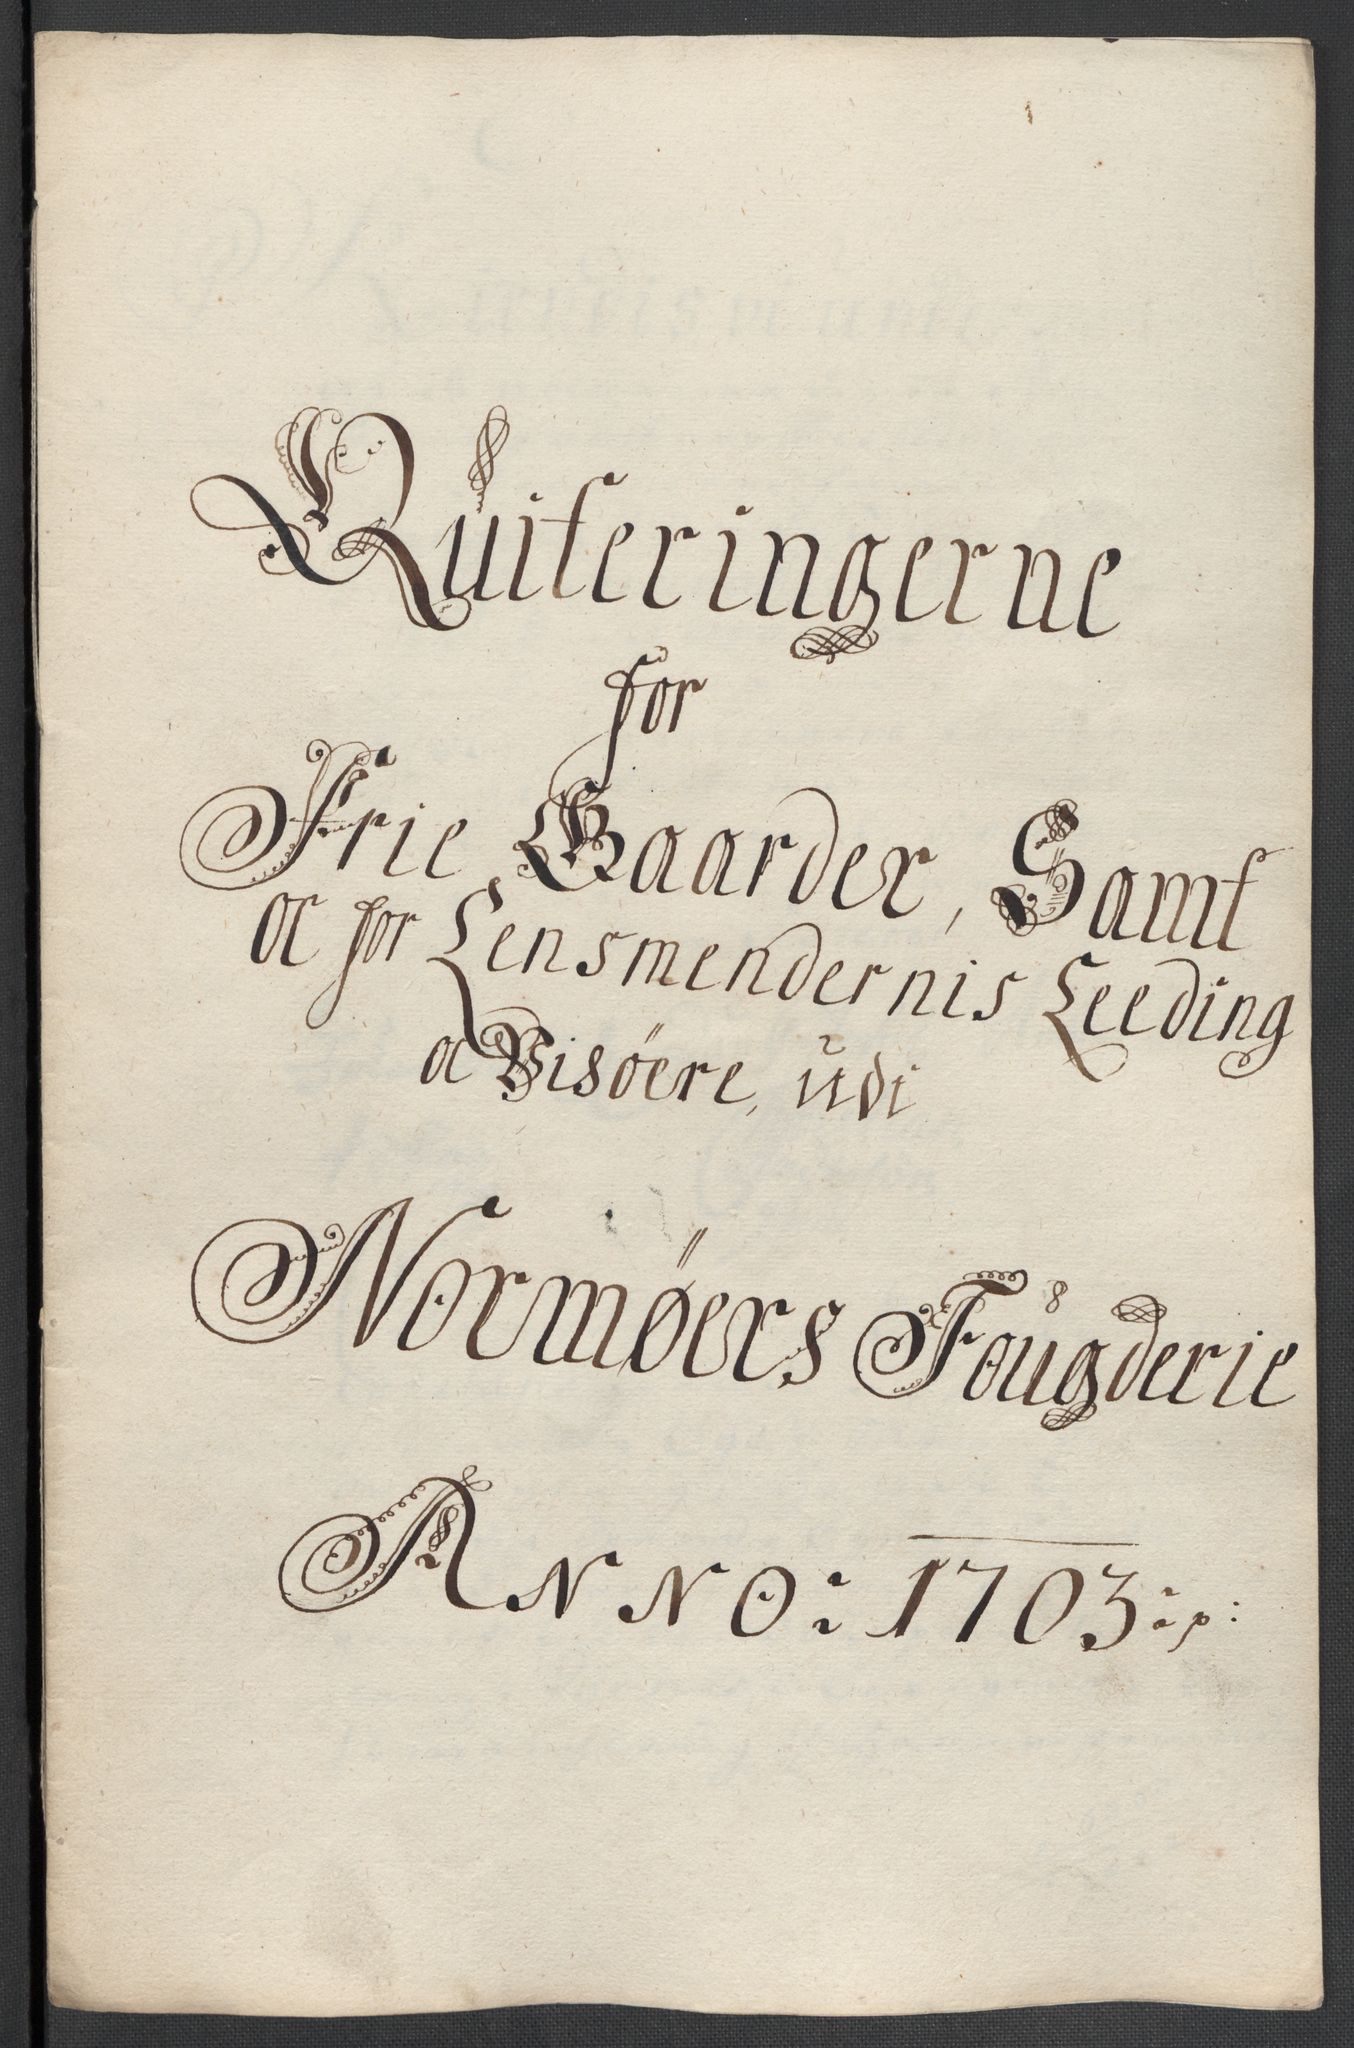 Quiteringerne
for
Frie Gaarder, Samt
oc for Lensmendernis Leeding
oc Visøere, udi
Normøers Fougderie
Anno: 1703: